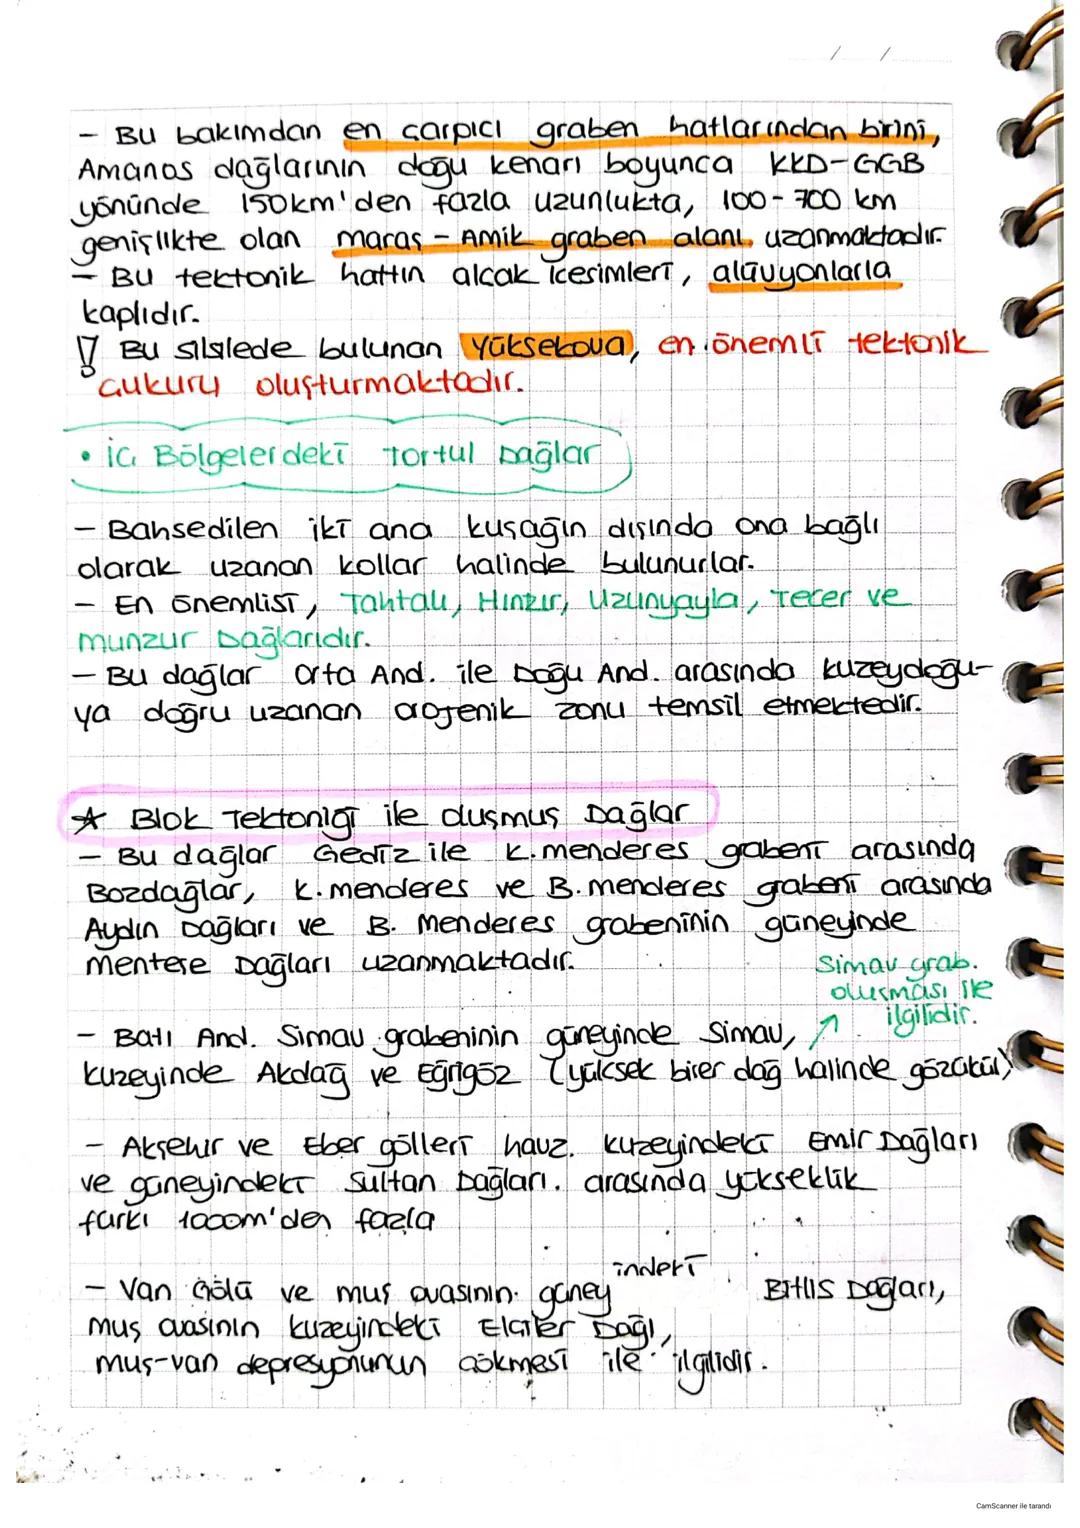 / /
- Bu bakımdan en çarpıcı graben hatlarından birini,
Amanos dağlarının doğu kenarı boyunca KKD-GGB
yönünde 150km'den fazla uzunlukta, 100-700 km
genişlikte olan maraş - Amik graben alanı uzanmaktadır.
- Bu tektonik hattın alçak kesimleri, alüvyonlarla
kaplıdır.
! Bu silsilede bulunan Yüksekova, en önemli tektonik
çukuru oluşturmaktadır.
• İç Bölgelerdeki Tortul Dağlar
- Bahsedilen iki ana kuşağın dışında ona bağlı
olarak uzanan kollar halinde bulunurlar.
- En önemlisi, Tahtalı, Hınzır, Uzunyayla, Tecer ve
munzur Dağlarıdır.
- Bu dağlar Orta And. ile Doğu And. arasında kuzeydoğu-
ya doğru uzanan orojenik zonu temsil etmektedir.
☆ Blok Tektoniği ile oluşmuş Dağlar
- Bu dağlar Gediz ile K.menderes grabeni arasında
Bozdağlar, K.menderes ve B.menderes grabeni arasında
Aydın Dağları ve B. Menderes grabeninin güneyinde
menteşe Dağları uzanmaktadır.
Simav grab.
oluşması ile
ilgilidir.
- Batı And. Simav grabeninin güneyinde Simav, ↗
kuzeyinde Akdağ ve Eğrigöz (yüksek birer dağ halinde gözükür)
- Akşehir ve Eber gölleri havz. kuzeyindeki Emir Dağları
ve güneyindeki Sultan Dağları. arasında yükseklik
farkı 1000m'den fazla
- Van Gölü ve muş ovasının güneyindeki Bitlis Dağları,
muş ovasının kuzeyindeki Elçiler Dağı,
muş-van depresyonunun çökmesi ile ilgilidir.
CamScanner ile tarandı